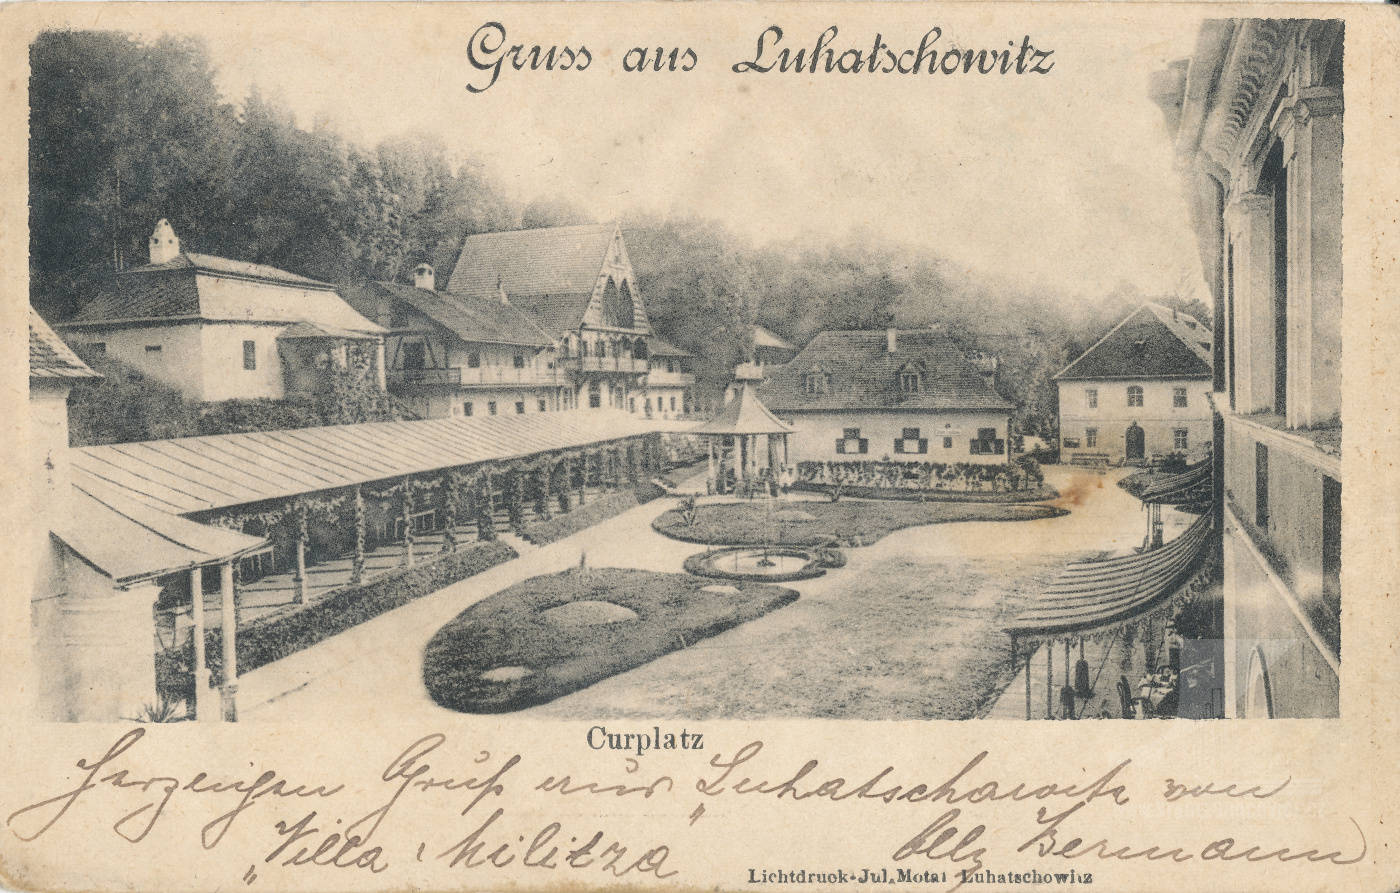 Gruss aus Luhatschowitz
Curplatz
Herzeigen Gruß aus Luhatschowitz von
„Villa Militza" Bermann
Lichtdruck-Jul. Motal Luhatschowitz